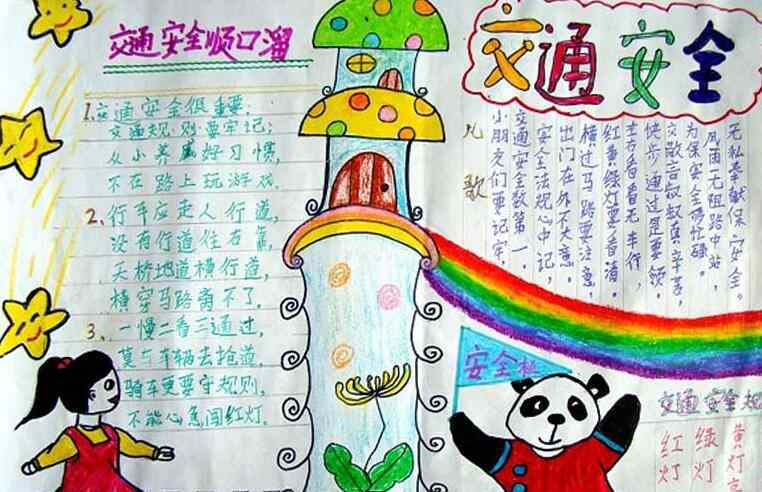 交通安全顺口溜
1、交通安全很重要,
交通规则要牢记;
从小养成好习惯,
不在路上玩游戏.
2、行手应走人行道,
没有行道往右靠,
天桥地道横行道,
横穿马路离不了.
3、一慢二看三通过,
莫与车辆去抢道.
骑车更要守规则,
不能心急闯红灯.
交通安全
儿歌
小朋友们要记牢,
交通安全数第一.
安全法规心中记,
出门在外不大意.
横过马路要注意,
红黄绿灯要看清.
左看右看无车行,
快步通过是要领.
交警叔叔真辛苦,
为保安全确忙碌.
风雨无阻路中站,
无私奉献保安全.
安全
交通安全规
红灯
绿灯
黄灯